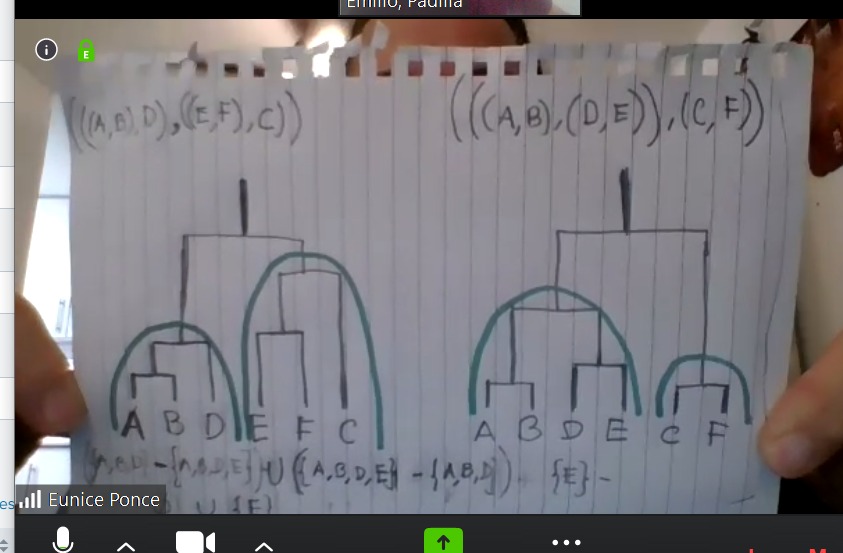 Emilio, Padilla
E
(((A,B),D),((E,F),C))
(((A,B),(D,E)),(C,F))
A B D E F C
A B D E C F
{A,B,D} - {A,B,D,E}) U ({A,B,D,E} - {A,B,D}) {E} -
U {E}
es
Eunice Ponce